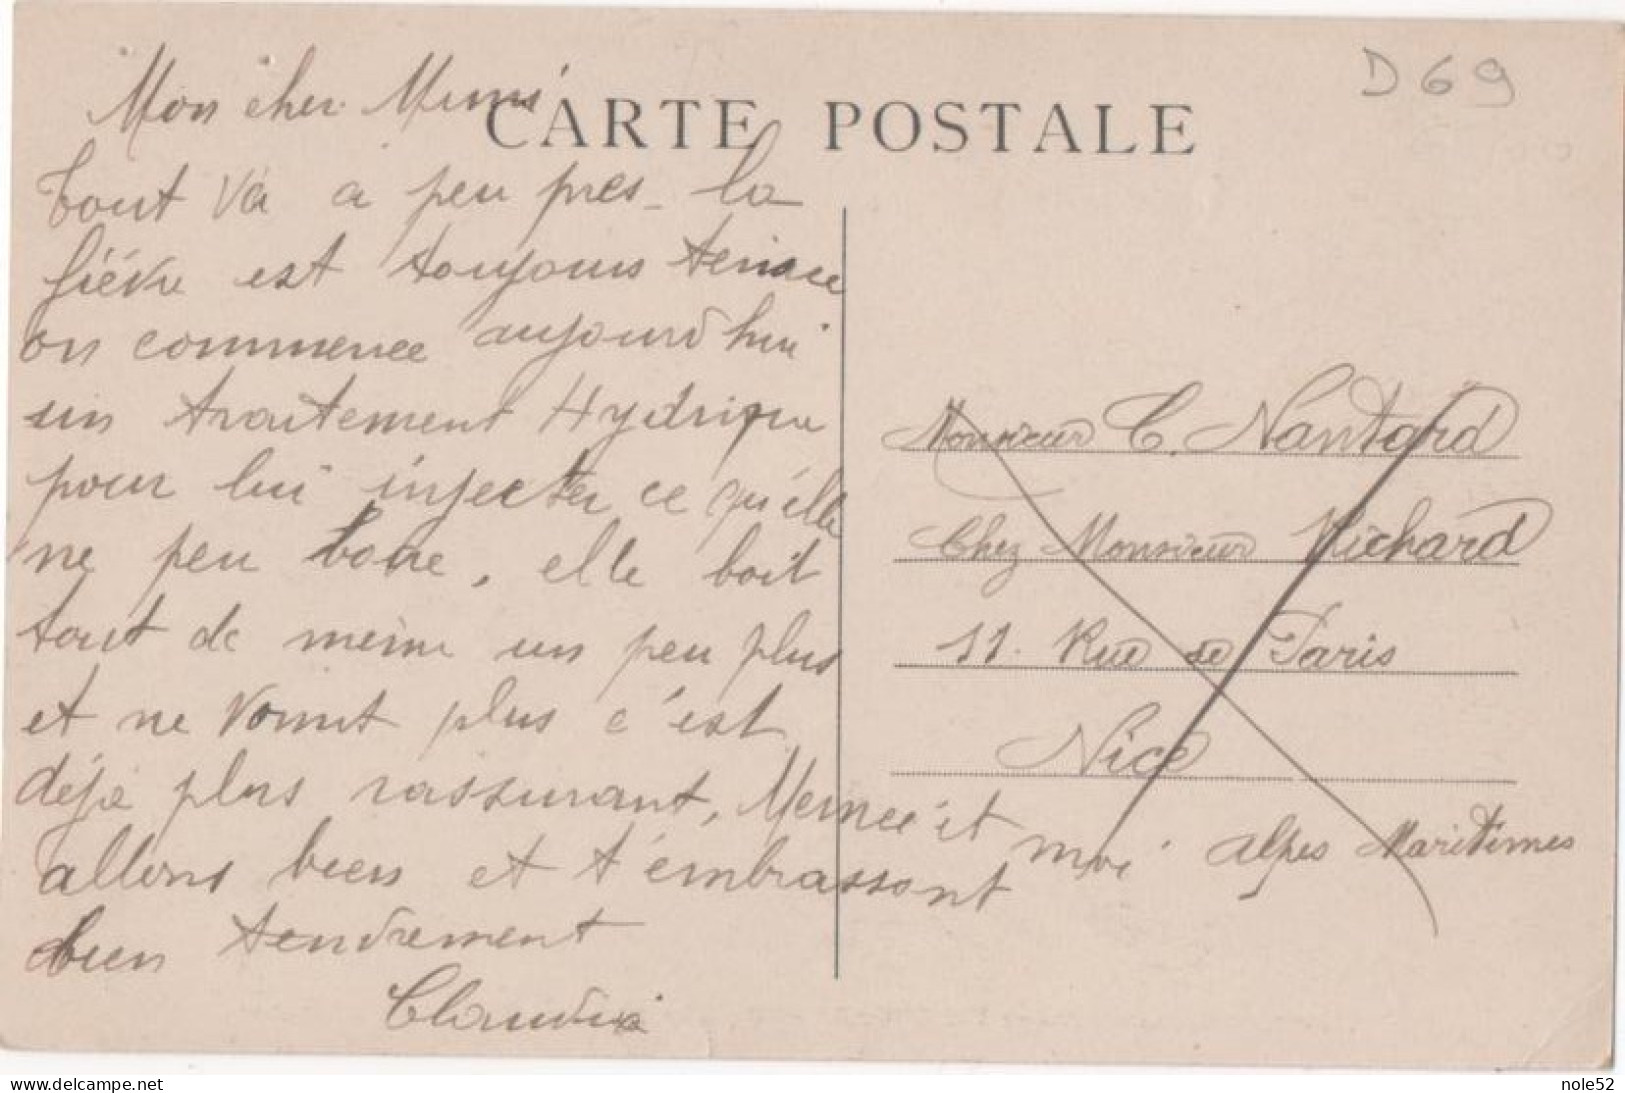 D 69
CARTE POSTALE
Mon cher Mimi
tout va a peu pres - la
fiévre est toujours tenace
on commence aujourd'hui
un traitement Hydrique
pour lui injecter ce qu'elle
ne peu boire, elle boit
tout de meme un peu plus
et ne vomit plus c'est
déja plus rassurant, et moi
allons bien et t'embrassont
bien tendrement
Claudia
Monsieur C. Nantard
Chez Monsieur Richard
11. Rue de Paris
Nice
Alpes Maritimes
delcampe.net
nole52